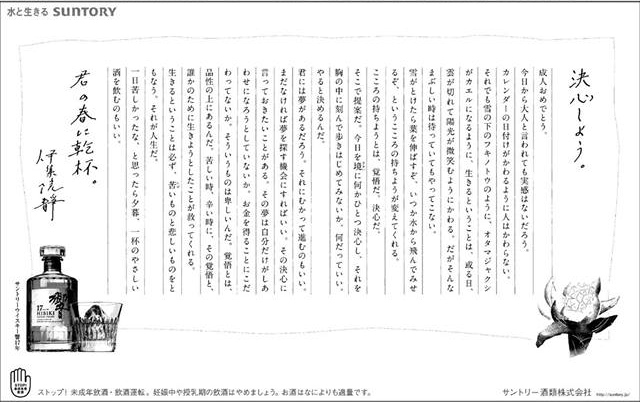 水と生きる SUNTORY
決心しよう。
成人おめでとう。
今日から大人と言われても実感はないだろう。
カレンダーの日付けがかわるように人はかわらない。
それでも雪の下のフキノトウのように、オタマジャクシ
がカエルになるように、生きるということは、或る日、
雲が切れて陽光が微笑むようにかわる。だがそんな
まぶしい時は待っていてもやってこない。
雪がとけたら葉を伸ばすぞ、いつか水から飛んでみせ
るぞ、というこころの持ちようが変えてくれる。
こころの持ちようとは、覚悟だ。決心だ。
そこで提案だ。今日を境に何かひとつ決心し、それを
胸の中に刻んで歩きはじめてみないか。何だっていい。
やると決めるんだ。
君には夢があるだろう。それにむかって進むのもいい。
まだなければ夢を探す機会にすればいい。その決心に
言っておきたいことがある。その夢は自分だけがしあ
わせになろうとしていないか。お金を得ることにこだ
わってないか。そういうものは卑しいんだ。覚悟とは、
品性の上にあるんだ。苦しい時、辛い時に、その覚悟と、
誰かのために生きようとしたことが救ってくれる。
生きるということは必ず、苦いものと悲しいものをと
もなう。それが人生だ。
一日苦しかったな、と思ったら夕暮、一杯のやさしい
酒を飲むのもいい。
君の春に乾杯。
伊集院静
響
17
HIBIKI
サントリーウイスキー響17年
STOP!
ストップ！未成年飲酒・飲酒運転。妊娠中や授乳期の飲酒はやめましょう。お酒はなによりも適量です。
サントリー酒類株式会社 http://suntory.jp/